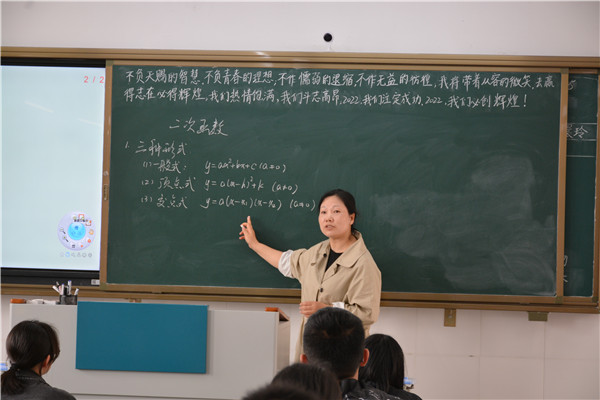 2/2
不负天赐的智慧,不负青春的理想,不作懦弱的退缩,不作无益的彷徨,我将带着从容的微笑,去赢
得志在必得辉煌,我们热情饱满,我们斗志高昂,2022,我们一定成功,2022,我们必创辉煌!
二次函数
1. 三种形式
(1) 一般式: y=ax²+bx+c (a≠0)
(2) 顶点式 y=a(x-h)²+k (a≠0)
(3) 交点式 y=a(x-x₁)(x-x₂) (a≠0)
玲